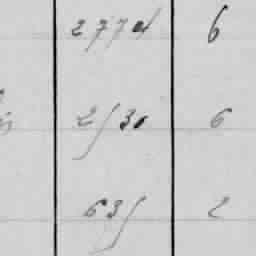 2774 6
2530 6
635 2